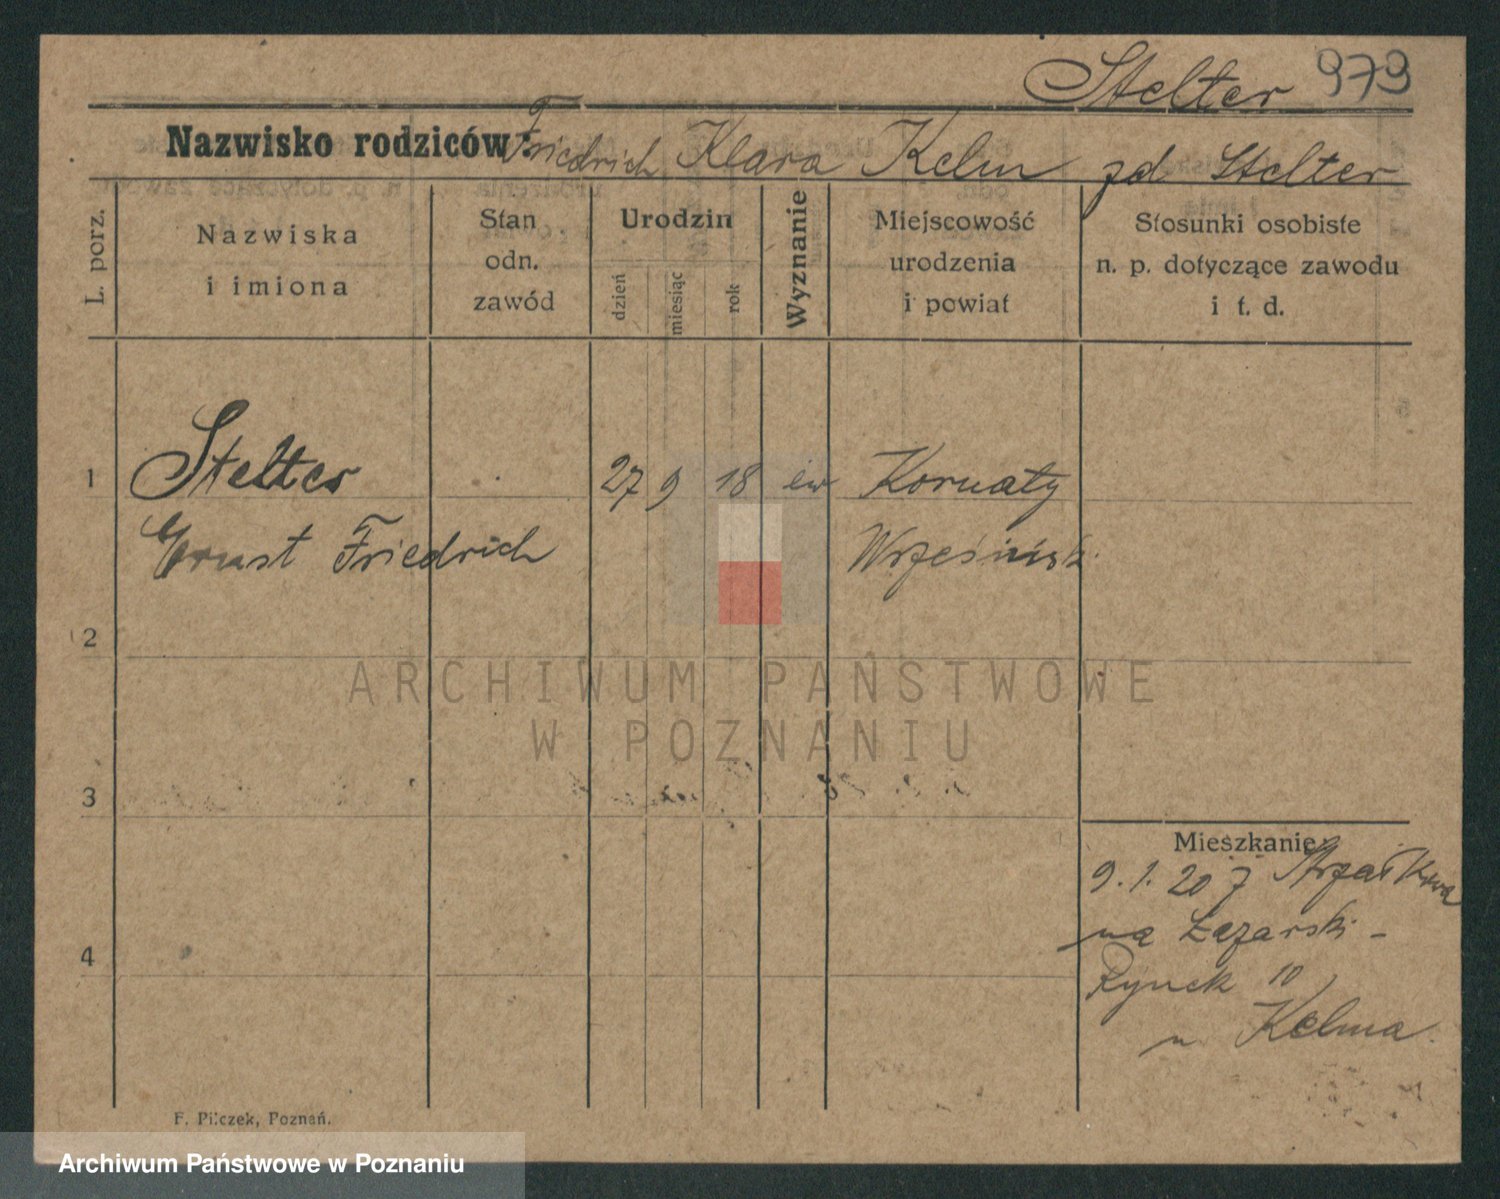 Stelter 979
Nazwisko rodziców: Friedrich Klara Kelm zd Stelter
L. porz.
Nazwiska
i imiona
Stan
odn.
zawód
Urodzin
dzień
miesiąc
rok
Wyznanie
Miejscowość
urodzenia
i powiat
Stosunki osobiste
n. p. dotyczące zawodu
i t. d.
1 Stelter 27 9 18 ew Kornaty
Ernst Friedrich Wrześińsk.
2
ARCHIWUM PAŃSTWOWE
W POZNANIU
3
Mieszkanie:
9.1.20 z Strzałkowa
na Łazarski-
4
Rynek 10
u Kelma.
F. Pilczek, Poznań.
Archiwum Państwowe w Poznaniu